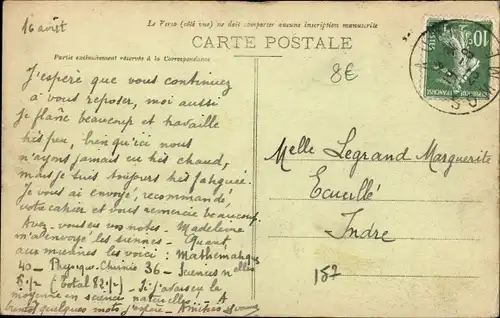 16 août
Le Verso (côté vue) ne doit comporter aucune inscription manuscrite
CARTE POSTALE
Partie exclusivement réservée à la Correspondance
8€
10
J'espère que vous continuez
à vous reposer, moi aussi
je flâne beaucoup et travaille
très peu, bien qu'ici nous
n'ayons jamais eu très chaud,
mais je suis toujours très fatiguée.
Je vous ai envoyé, recommandé,
votre cahier et vous remercie beaucoup.
Avez-vous eu vos notes. Madeleine
m'a envoyé les siennes. Quant
aux miennes les voici: Mathématiques
40 - Physique-Chimie 36 - Sciences nelles
5 1/2 (total 82 1/2) - Si j'avais eu la
moyenne en sciences naturelles. A
bientôt quelques mots j'espère - Amitiés
Melle Legrand Marguerite
Ecueillé
Indre
187